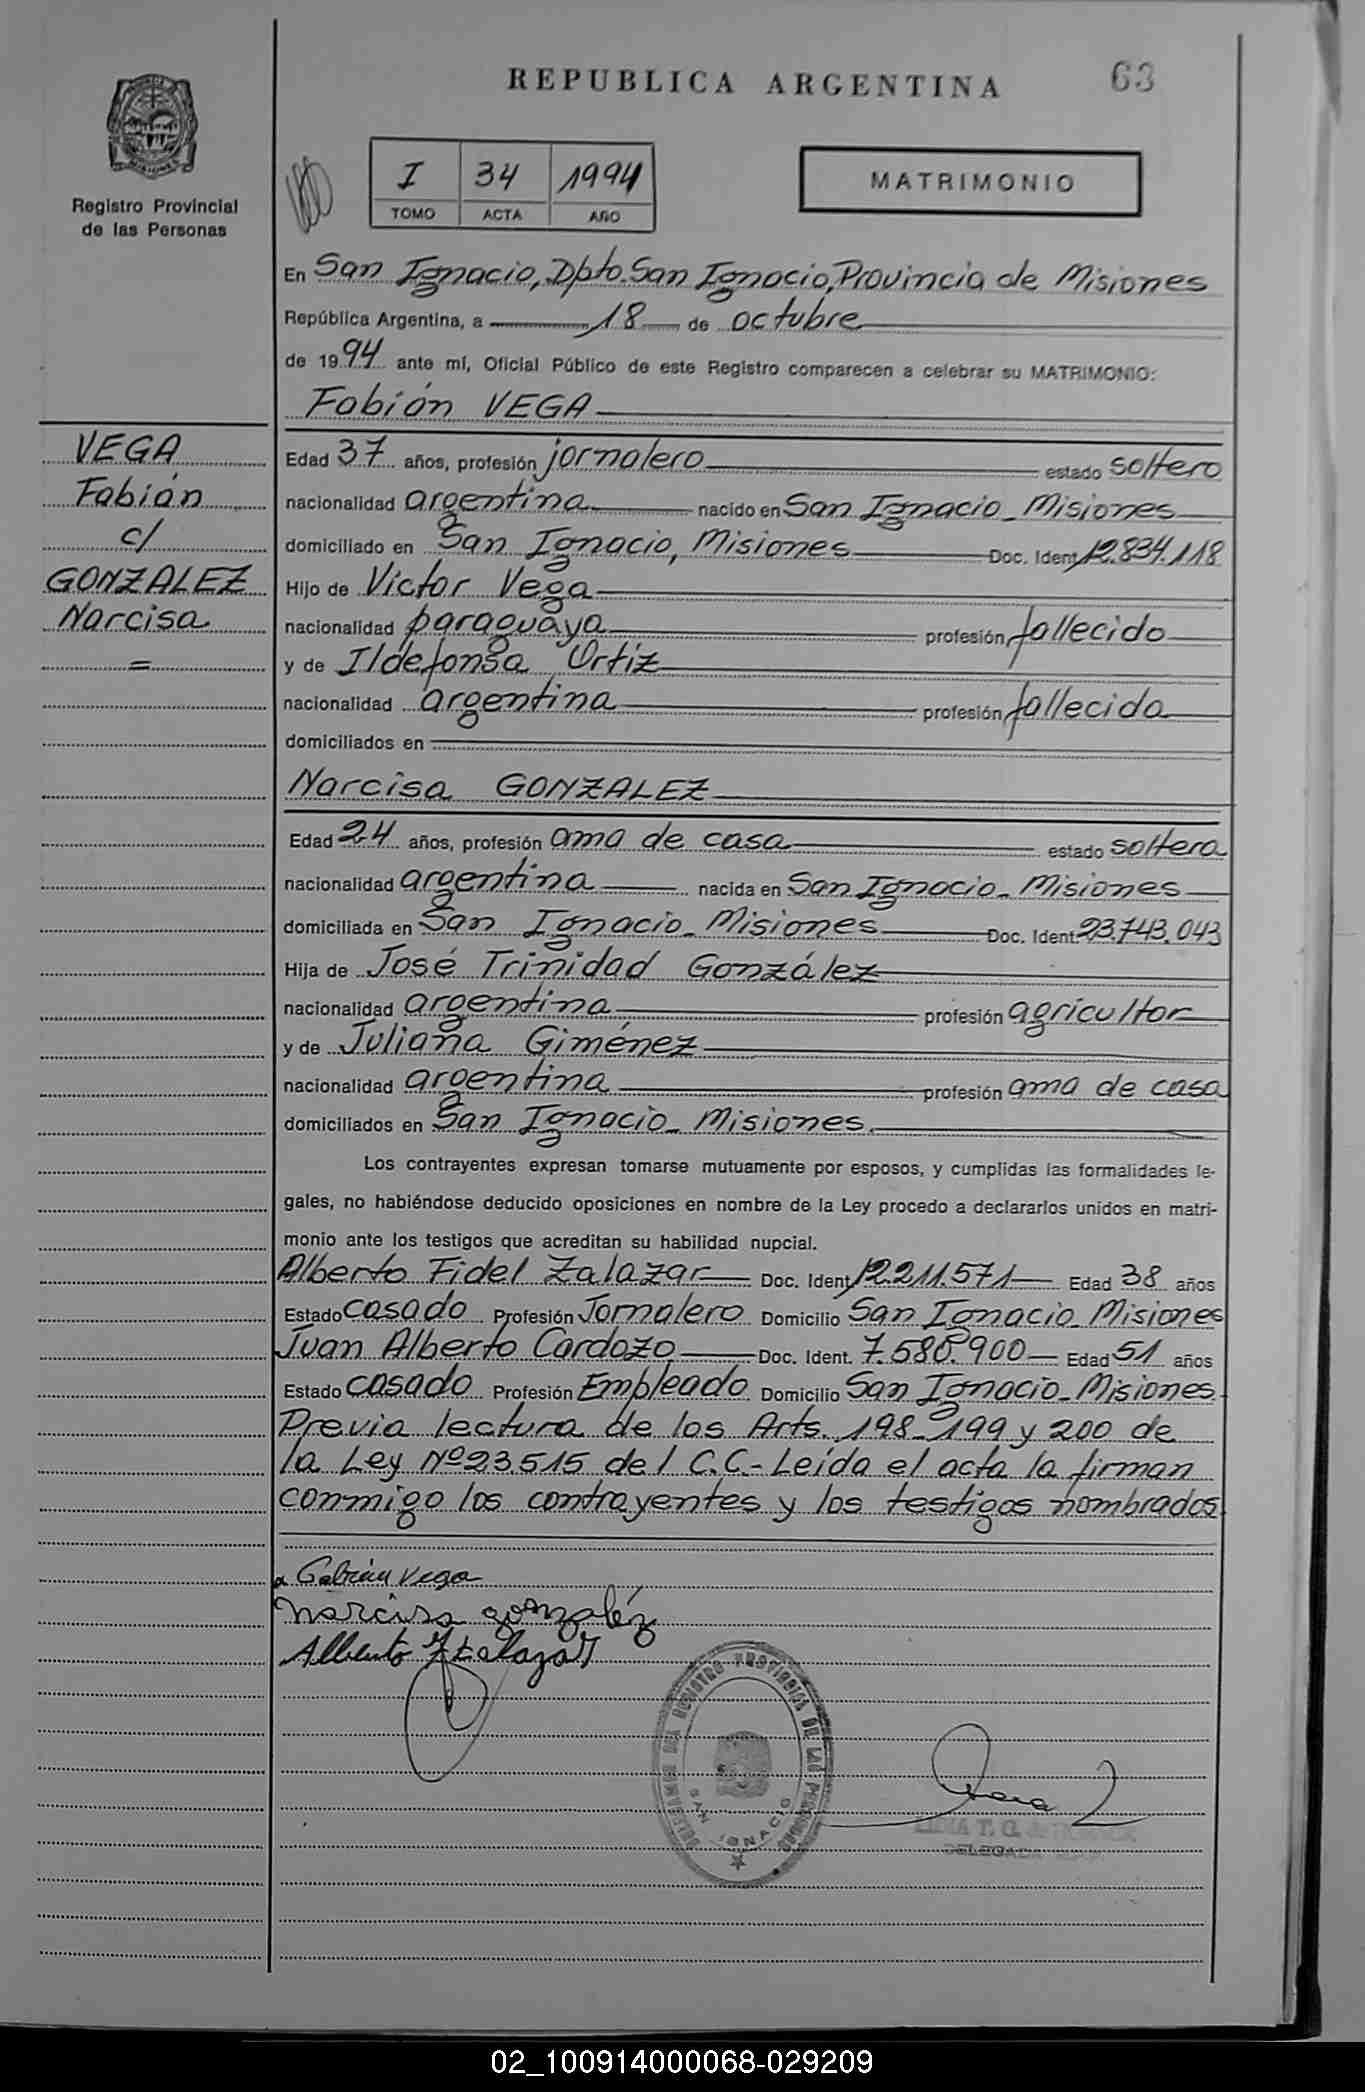 REPUBLICA ARGENTINA
63
Registro Provincial
de las Personas
I 34 1994
TOMO ACTA AÑO
MATRIMONIO
En San Ignacio, Dpto. San Ignacio, Provincia de Misiones
República Argentina, a 18 de octubre
de 1994 ante mí, Oficial Público de este Registro comparecen a celebrar su MATRIMONIO:
Fabián VEGA
VEGA
Fabián
c/
GONZALEZ
Narcisa
=
Edad 37 años, profesión jornalero estado soltero
nacionalidad argentina nacido en San Ignacio - Misiones
domiciliado en San Ignacio, Misiones Doc. Ident. 12.834.118
Hijo de Victor Vega
nacionalidad paraguaya profesión fallecido
y de Ildefonsa Ortiz
nacionalidad argentina profesión fallecida
domiciliados en
Narcisa GONZALEZ
Edad 24 años, profesión ama de casa estado soltera
nacionalidad argentina nacida en San Ignacio - Misiones
domiciliada en San Ignacio - Misiones Doc. Ident. 23.743.043
Hija de José Trinidad González
nacionalidad argentina profesión agricultor
y de Juliana Giménez
nacionalidad argentina profesión ama de casa
domiciliados en San Ignacio - Misiones.
Los contrayentes expresan tomarse mutuamente por esposos, y cumplidas las formalidades le-
gales, no habiéndose deducido oposiciones en nombre de la Ley procedo a declararlos unidos en matri-
monio ante los testigos que acreditan su habilidad nupcial.
Alberto Fidel Zalazar Doc. Ident. 12.211.571 Edad 38 años
Estado casado Profesión Jornalero Domicilio San Ignacio - Misiones
Juan Alberto Cardozo Doc. Ident. 7.580.900 Edad 51 años
Estado casado Profesión Empleado Domicilio San Ignacio - Misiones.
Previa lectura de los Arts. 198 - 199 y 200 de
la Ley Nº 23.515 del C.C.- Leída el acta la firman
conmigo los contrayentes y los testigos nombrados.
Fabián Vega
narcisa gonzaléz
Alberto F Zalazar
REGISTRO PROVINCIAL DE LAS PERSONAS
SAN IGNACIO
T. G. de
DELEGADA
02_100914000068-029209